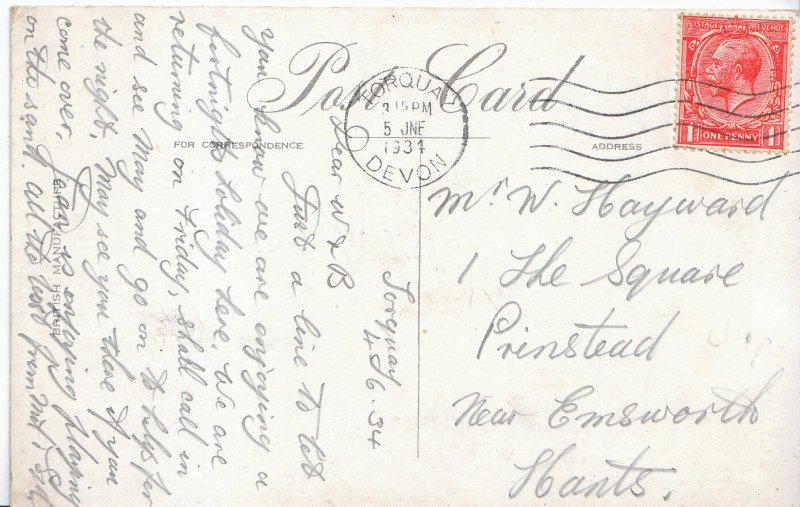 Post Card
FOR CORRESPONDENCE
ADDRESS
BRITISH MANUFACTURE
TORQUAY
3.15 PM
5 JNE
1934
DEVON
POSTAGE REVENUE
1 ONE PENNY 1
Mr W. Hayward
1 The Square
Prinstead
Near Emsworth
Hants.
Torquay
4/6.34
Dear W & B
Just a line to let
you know we are enjoying a
fortnights holiday here. We are
returning on Friday, shall call in
and see May and go on to for
the night, May see you there if you
come over, Jean is enjoying playing
on the sand. all the best from